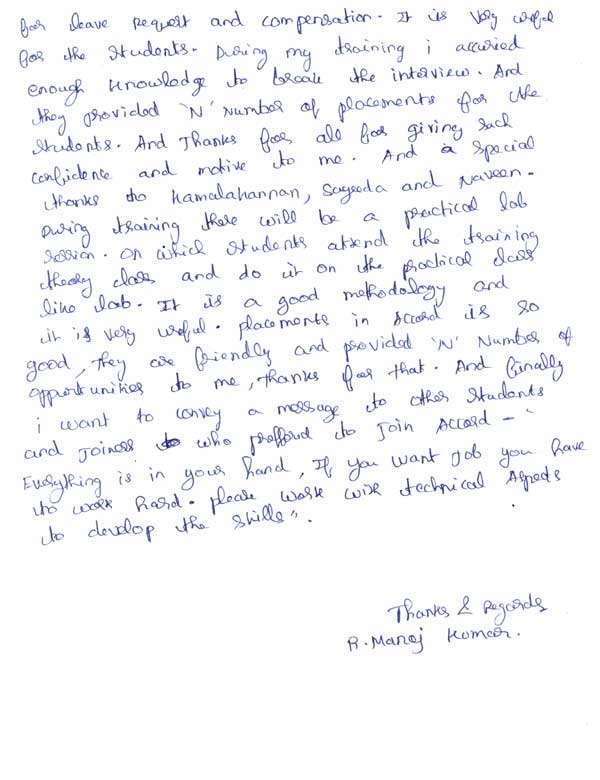 for leave request and compensation. It is very useful
for the students. During my training i accuried
enough knowledge to break the interview. And
they provided 'N' Number of placements for the
students. And Thanks for all for giving such
confidence and motive to me. And a special
thanks to Kamalahannan, Sayeeda and Naveen.
During training there will be a practical lab
session. On which students attend the training
theory class and do it on the practical class
like lab. It is a good methodology and
it is very useful. placements in Accord is so
good, they are friendly and provided 'N' Number of
opportunities to me, thanks for that. And finally
i want to convey a message to other students
and joiness who prefford to join Accord - "
Everything is in your hand, If you want job you have
to work hard. please work wise technical Aspects
to develop the skills".
Thanks & Regards
R. Manoj Kumar.